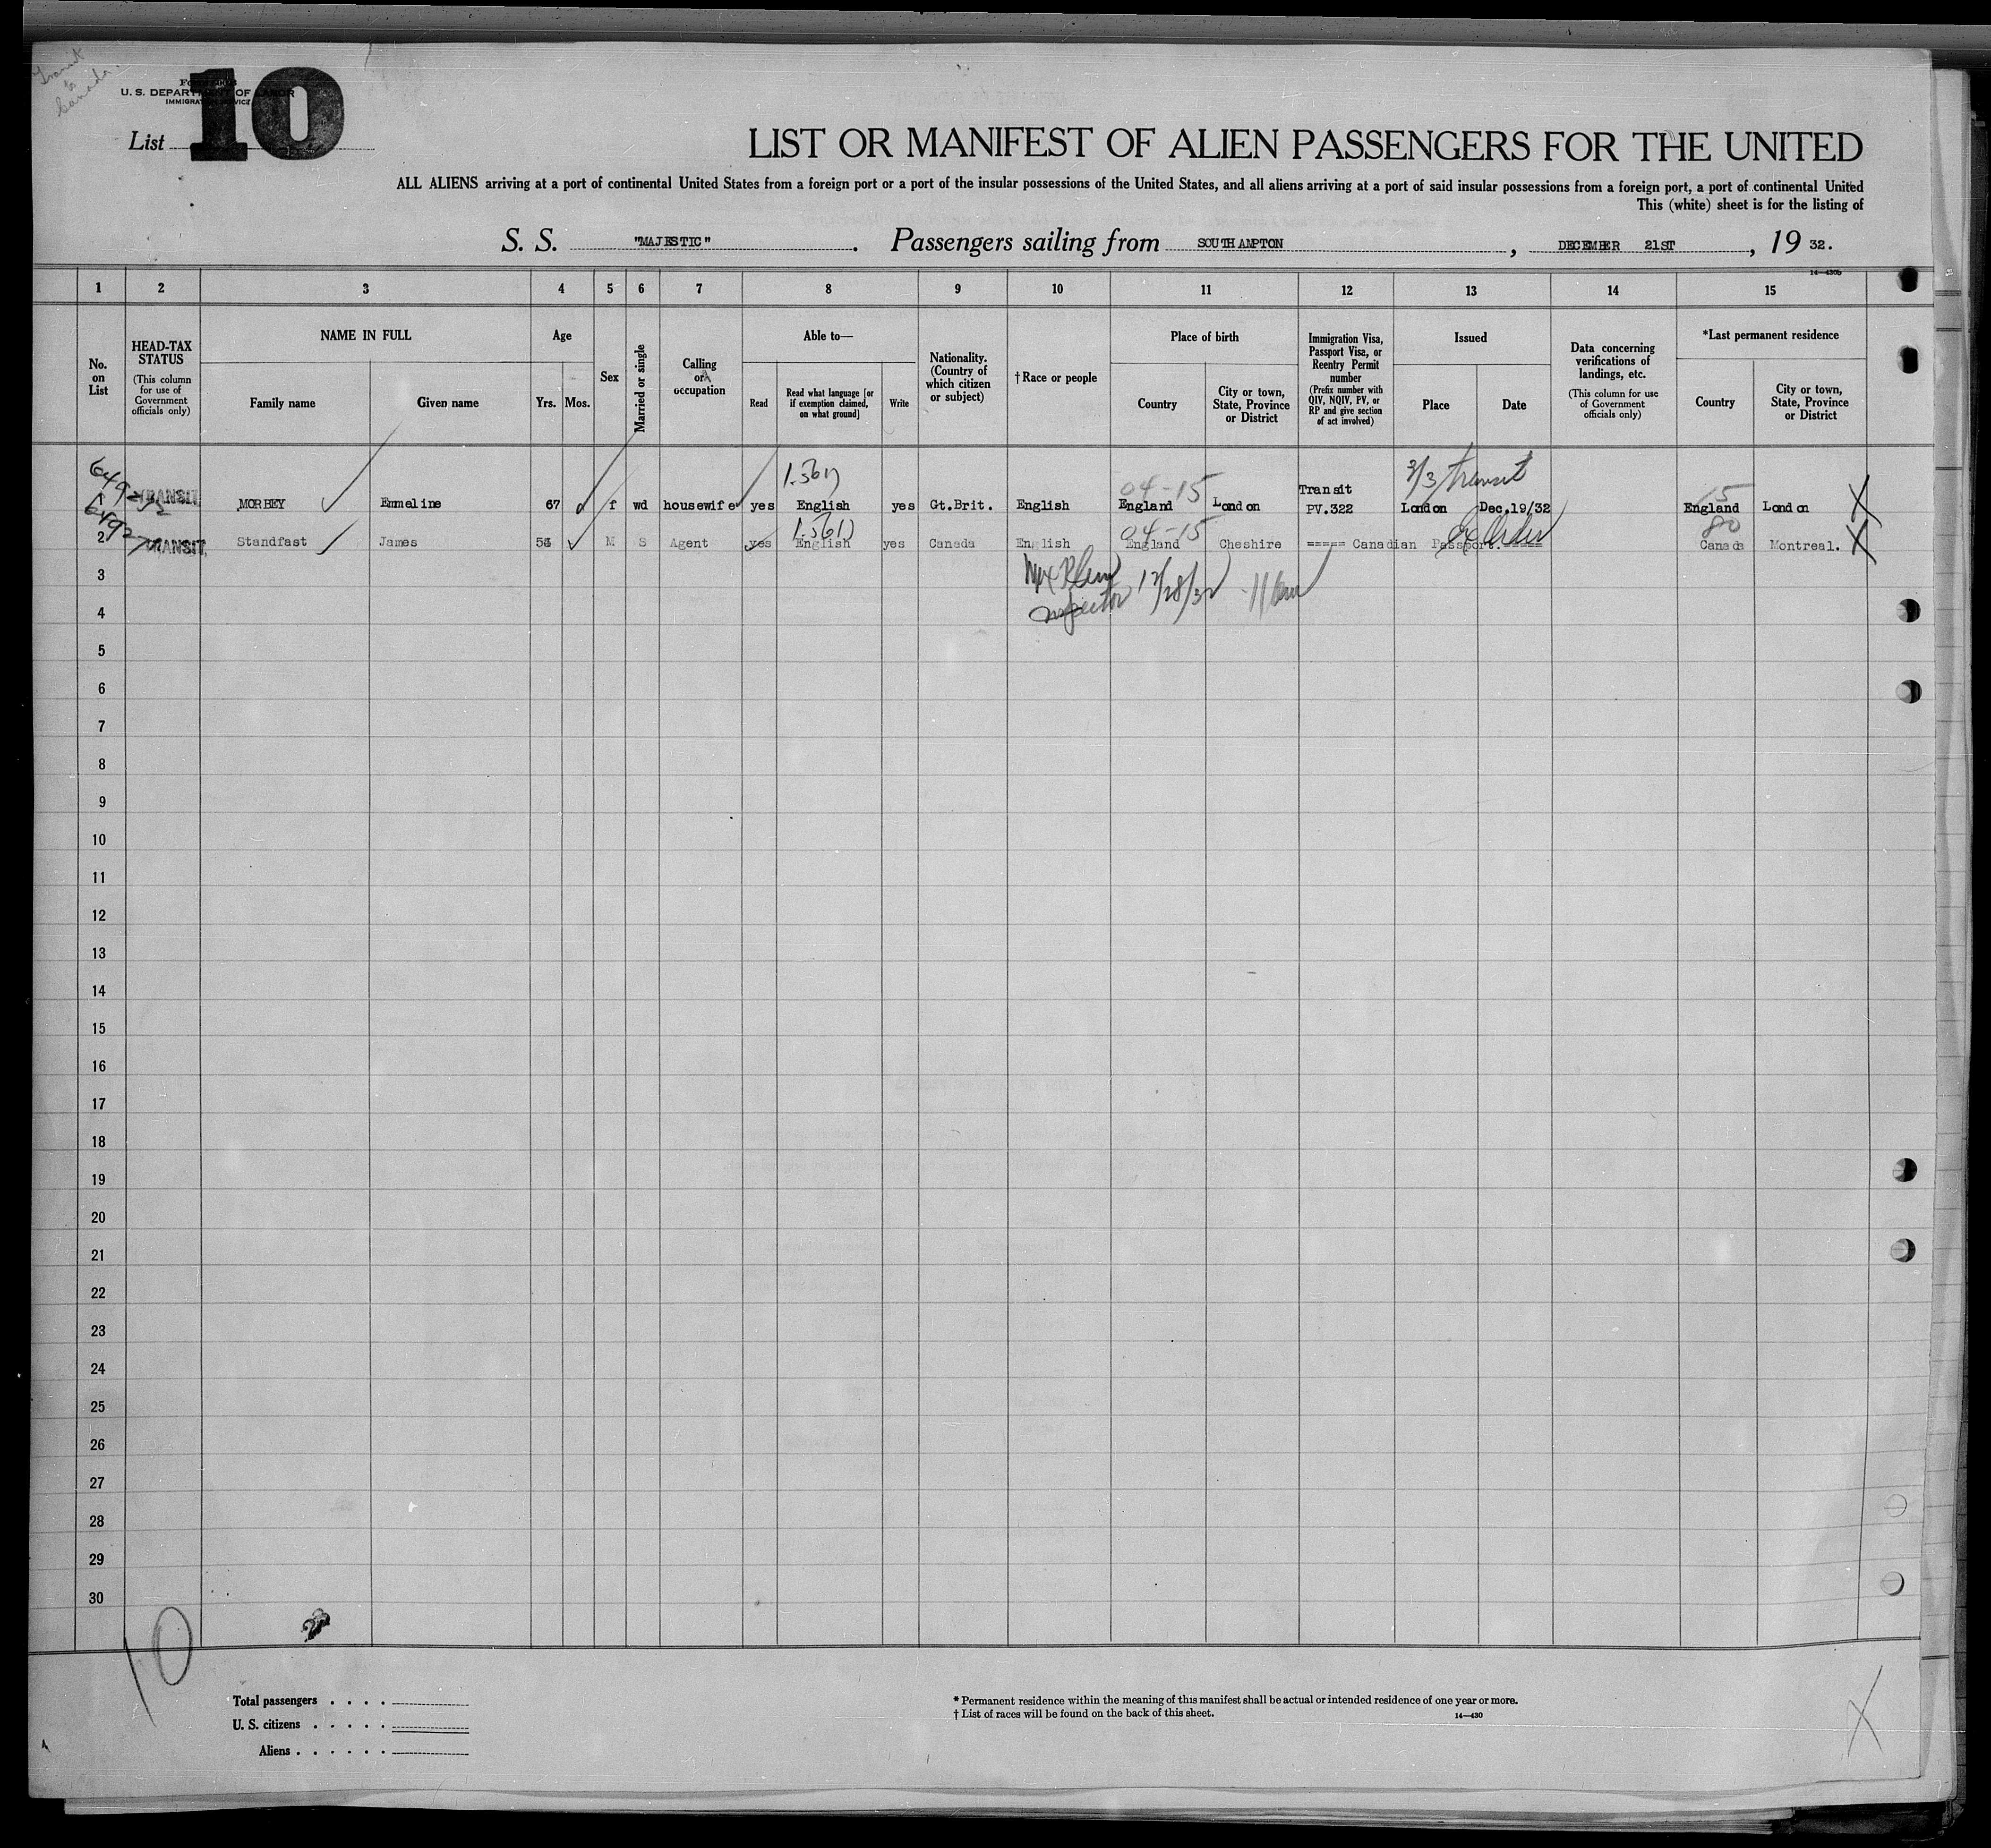 Transit
to
Canada.
U. S. DEPARTMENT OF LABOR
IMMIGRATION SERVICE
List 10
LIST OR MANIFEST OF ALIEN PASSENGERS FOR THE UNITED
ALL ALIENS arriving at a port of continental United States from a foreign port or a port of the insular possessions of the United States, and all aliens arriving at a port of said insular possessions from a foreign port, a port of continental United
This (white) sheet is for the listing of
S. S. "MAJESTIC". Passengers sailing from SOUTHAMPTON, DECEMBER 21ST, 19 32.
14—430b
1 2 3 4 5 6 7 8 9 10 11 12 13 14 15
No. on List
HEAD-TAX STATUS (This column for use of Government officials only)
NAME IN FULL
Family name
Given name
Age
Yrs. Mos.
Sex
Married or single
Calling or occupation
Able to—
Read
Read what language [or if exemption claimed, on what ground]
Write
Nationality. (Country of which citizen or subject)
† Race or people
Place of birth
Country
City or town, State, Province or District
Immigration Visa, Passport Visa, or Reentry Permit number (Prefix number with QIV, NQIV, PV, or RP and give section of act involved)
Issued
Place
Date
Data concerning verifications of landings, etc. (This column for use of Government officials only)
*Last permanent residence
Country
City or town, State, Province or District
04-15 3/3 transit 15
1 TRANSIT MORBEY Emmeline 67 f wd housewife yes English yes Gt.Brit. English England London Transit PV.322 London Dec.19/32 England London X
04-15 80
2 TRANSIT Standfast James M S Agent yes English yes Canada English England Cheshire ===== Canadian Passport. ===== Canada Montreal. X
3
Inspector 12/28/32
4
5
6
7
8
9
10
11
12
13
14
15
16
17
18
19
20
21
22
23
24
25
26
27
28
29
30
10
Total passengers . . . .
U. S. citizens . . . . .
Aliens . . . . . .
* Permanent residence within the meaning of this manifest shall be actual or intended residence of one year or more.
† List of races will be found on the back of this sheet.
14—430
X